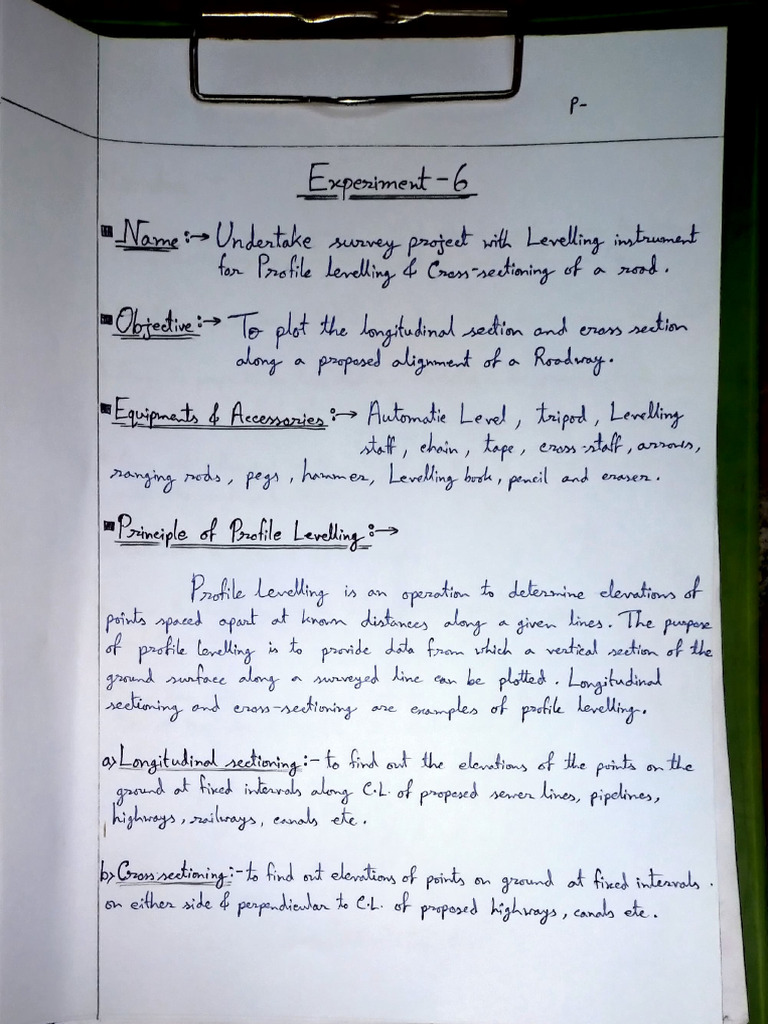 P-
Experiment-6
Name:→ Undertake survey project with Levelling instrument
for Profile levelling & Cross-sectioning of a road.
Objective:→ To plot the longitudinal section and cross section
along a proposed alignment of a Roadway.
Equipments & Accessories:→ Automatic Level, tripod, Levelling
staff, chain, tape, cross-staff, arrows,
ranging rods, pegs, hammer, Levelling book, pencil and eraser.
Principle of Profile Levelling:→
Profile Levelling is an operation to determine elevations of
points spaced apart at known distances along a given lines. The purpose
of profile levelling is to provide data from which a vertical section of the
ground surface along a surveyed line can be plotted. Longitudinal
sectioning and cross-sectioning are examples of profile levelling.
a) Longitudinal sectioning:- to find out the elevations of the points on the
ground at fixed intervals along C.L. of proposed sewer lines, pipelines,
highways, railways, canals etc.
b) Cross sectioning:- to find out elevations of points on ground at fixed intervals.
on either side & perpendicular to C.L. of proposed highways, canals etc.